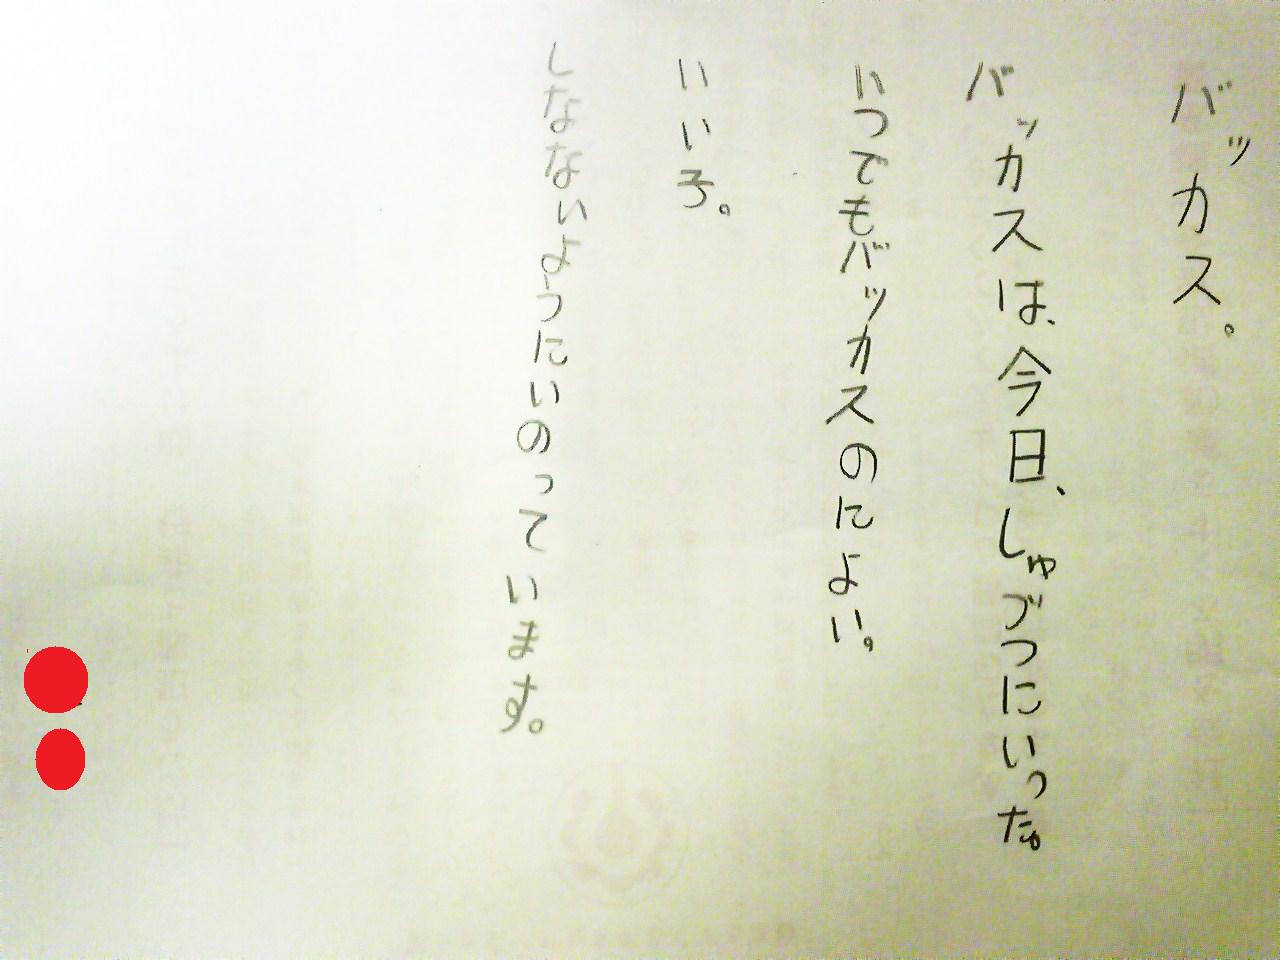 バッカス。
バッカスは、今日、しゅブつにいった。
いつでもバッカスのによい。
いい子。
しなないようにいのっています。